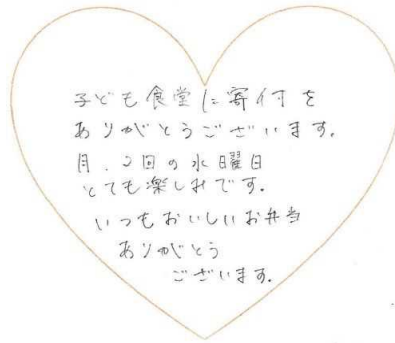 子ども食堂に寄付を
ありがとうございます。
月.2回の水曜日
とても楽しみです.
いつもおいしいお弁当
ありがとう
ございます.